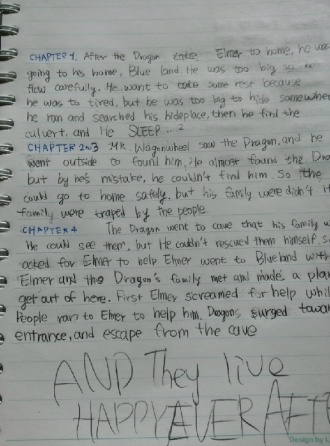 CHAPTER 1. After the Dragon takes Elmer to home, he was
going to his home, Blue land He was too big so
flow carefully. He want to take some rest because
he was to tired, but he was too big to hide somewhere
he ran and searched his hideplace, then he find the
culvert, and He SLEEP...z
CHAPTER 2~3 MR. Wagonwheel saw the Dragon, and he
went outside to found him. He almost found the Dra
but by he's mistake, he couldn't find him. So the
could go to home safely, but his family were didn't i
family, were traped by the people
CHAPTER 4 The Dragon went to cave that his family w
He could see them, but He couldn't rescued them himself, so
acted for Elmer to help Elmer went to Blueland with
Elmer and the Dragon's family met and made a plan
get out of here. First Elmer screamed for help while
People ran to Elmer to help him, Dragons surged towar
entrance, and escape from the cave
AND They live
HAPPY EVER AFT
Design by